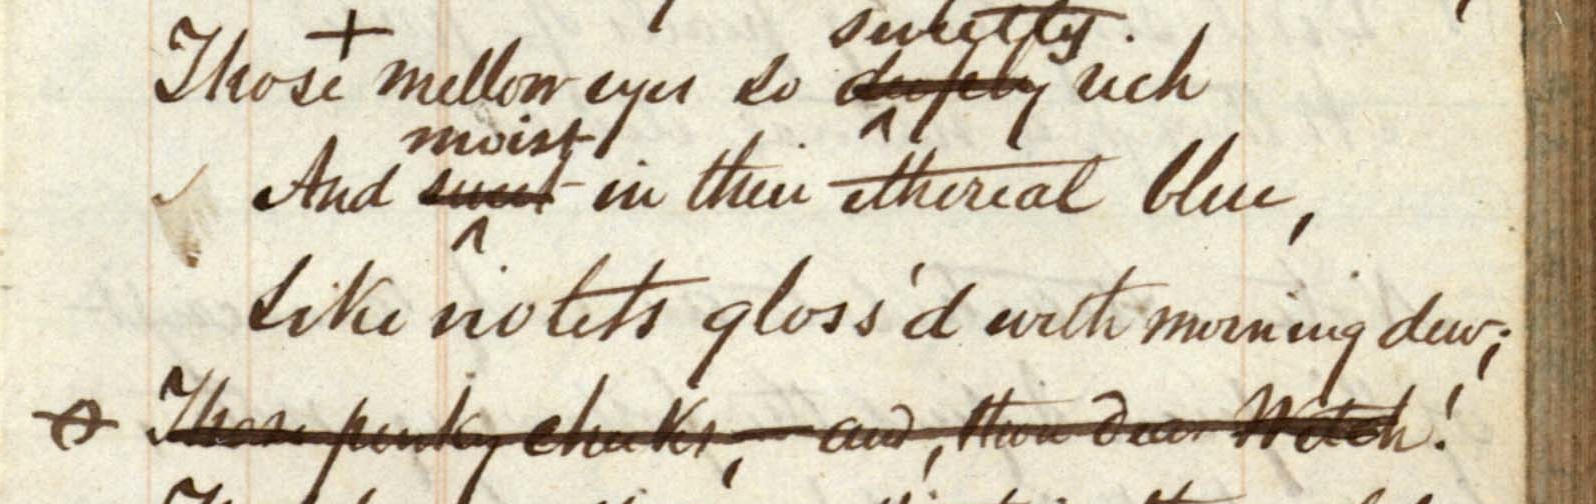 sweetly.
Those mellow eyes so deeply rich
moist
And sweet in their ethereal blue,
Like violets gloss'd with morning dew;
Those pinky cheeks, — and, thou dear Witch!